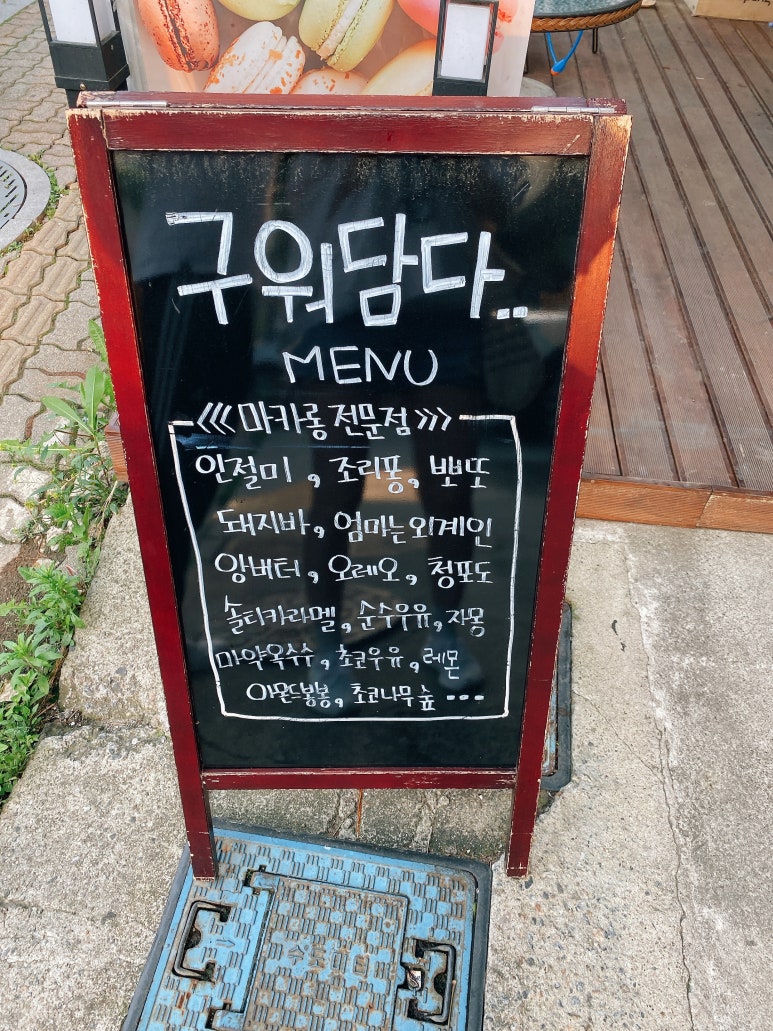 구워담다..
MENU
<<< 마카롱 전문점 >>>
인절미, 조리퐁, 뽀또
돼지바, 엄마는외계인
앙버터, 오레오, 청포도
솔티카라멜, 순수우유, 자몽
마약옥수수, 초코우유, 레몬
아몬드봉봉, 초코나무숲 ...